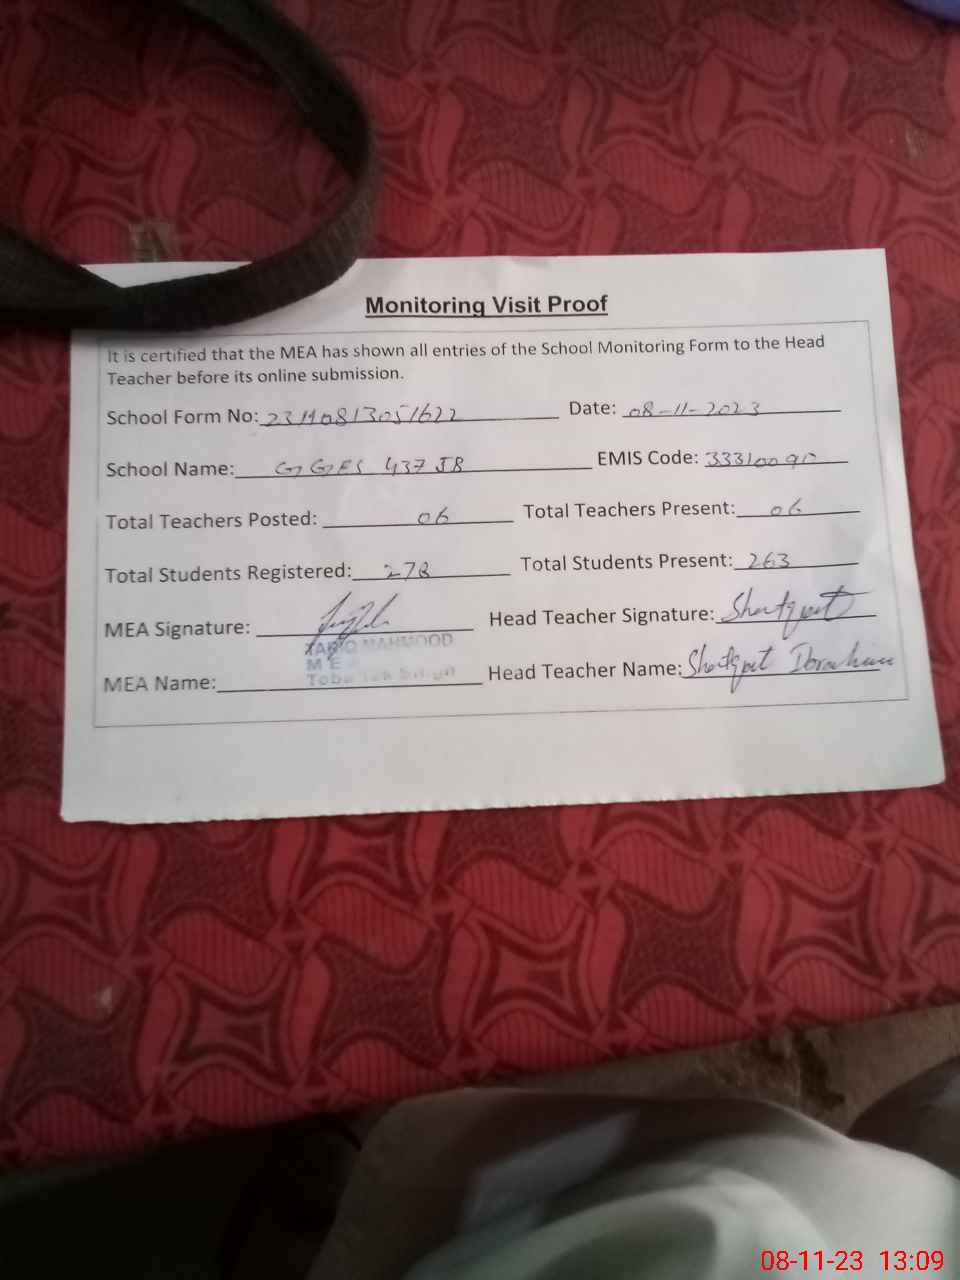 Monitoring Visit Proof
It is certified that the MEA has shown all entries of the School Monitoring Form to the Head
Teacher before its online submission.
School Form No: Date: 08-11-2023
School Name: GGES 437 JB EMIS Code: 33310090
Total Teachers Posted: 06 Total Teachers Present: 06
Total Students Registered: 278 Total Students Present: 263
MEA Signature: Head Teacher Signature:
TARIQ MAHMOOD
M E
MEA Name: Toba Tek Singh Head Teacher Name:
08-11-23 13:09